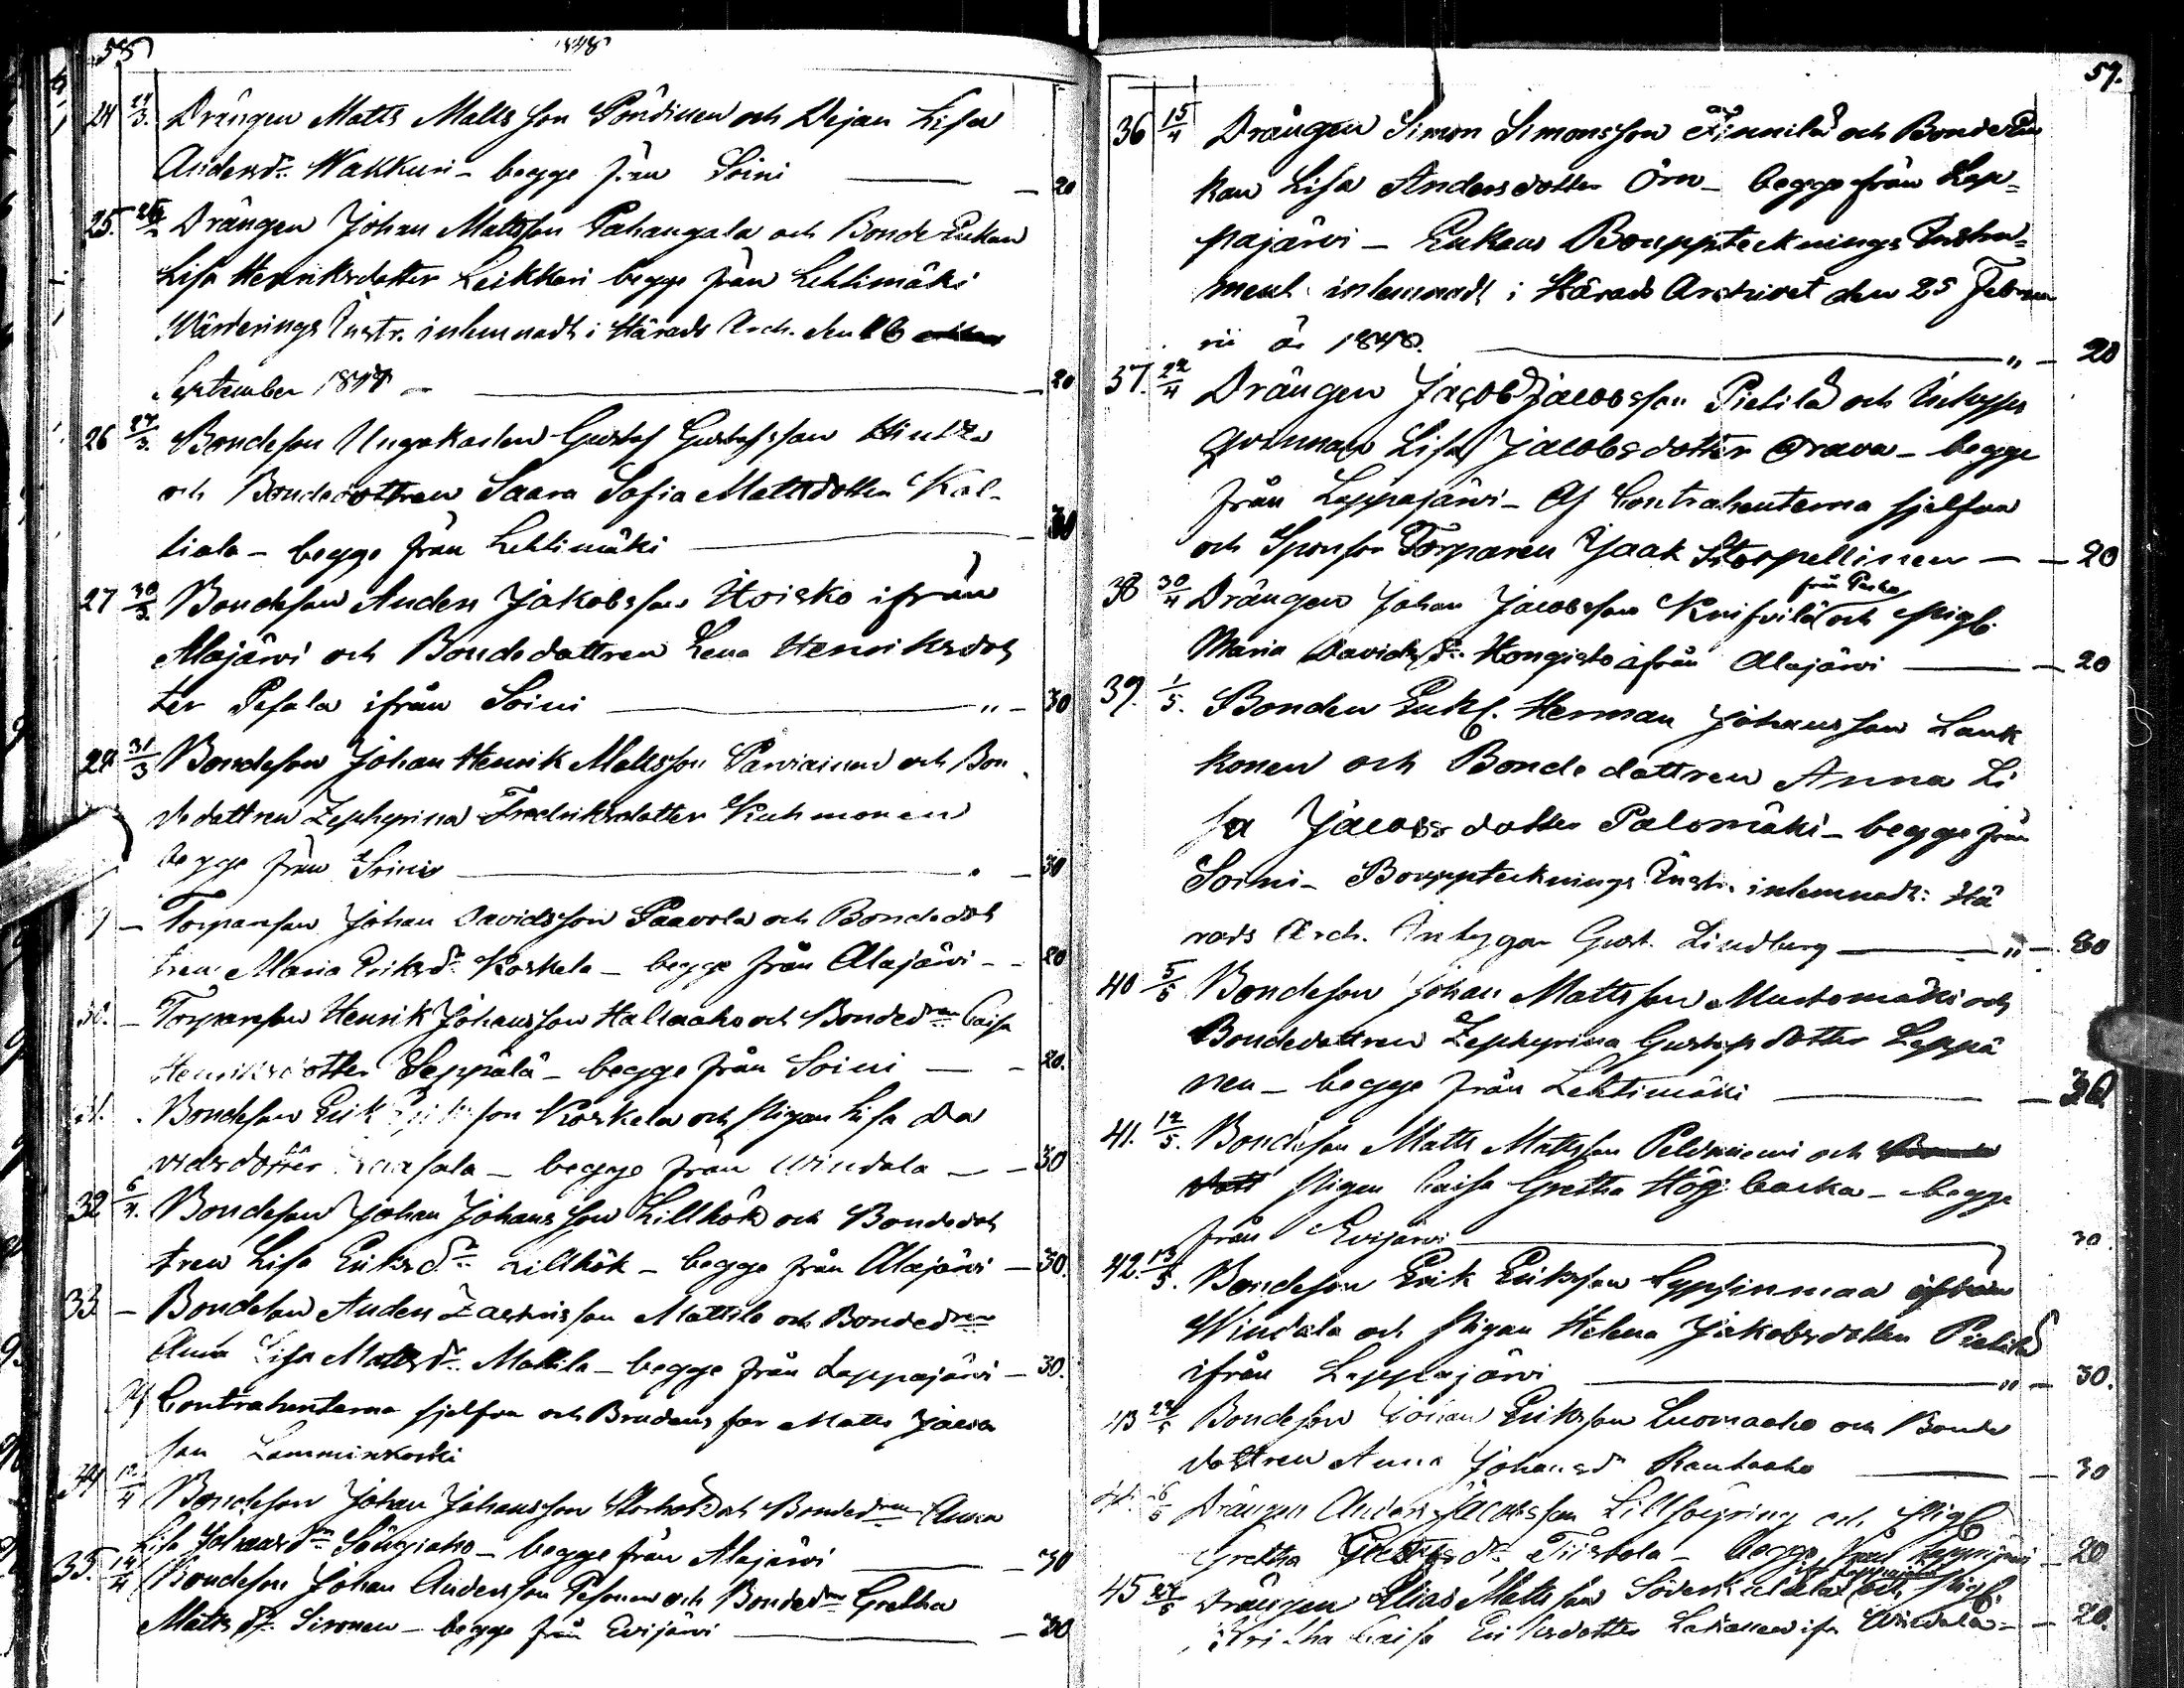 58
1848
24 24/3. Drängen Matts Matts son Pöndinen och Pigan Lisa
Andersdr. Wakkuri – begge från Soini — 20
25. Drängen Johan Mattsson Pahangala och Bonde Enkan
Lisa Henriksdotter Leikkari begge från Lehtimäki
Wärderings Instr. inlemnadt i Härads Arch. den 26
September 1847 — 20
26 27/3. Bondeson Ungakarlen Gustaf Gustafsson
och Bondedottren Saara Sofia Mattsdotter Kal-
liala – begge från Lehtimäki — 30
27 30/3. Bondeson Anders Jakobsson Hoisko ifrån
Alajärvi och Bondedottren Lena Henriksdot
ter Pesala ifrån Soini — " – 30
31/3 Bondeson Johan Henrik Mattsson Parviainen och Bon
dedottren Zephyrina Fredriksdotter Kuhmonen
begge från Soini — 30
– Torparson Johan Davidsson Paavola och Bondedot
tren Maria Eriksdr. Koskela – begge från Alajärvi – – 20
30. – Torparson Henrik Johansson Hallaaho och Bondedren Caisa
Henriksdotter Seppälä – begge från Soini — – 20.
31. Bondeson Erik Eriksson Koskela och Pigan Lisa Da
vidsdotter – begge från Windala — – 30
32 6/4. Bondeson Johan Johansson Lillkök och Bondedot
tren Lisa Eriksdr. Lillkök – begge från Alajärvi – 30.
33 – Bondeson Anders Zachrisson Mattila och Bondedren
Anna Lisa Mattsdr. Mattila – begge från Lappajärvi – 30.
Af Contrahenterna sjelfva och Brudens far Matts Jacobs
son Lamminkoski
34 12/4 Bondeson Johan Johansson och Bondedren Anna
Lisa Johansdr. Sängiaho – begge från Alajärvi — 30
35. 14/4 Bondeson Johan Andersson Pesonen och Bondedren Gretha
Matts dr. Sironen – begge från Evijärvi — 30
59.
36 15/4 Drängen Simon Simonsson Finnilä och Bonde En
kan Lisa Andersdotter Örn – begge från Lap=
pajärvi – Enkans Bouppteknings Instru=
ment inlemnadt i Härads Archivet den 25 Februa
rii år 1848. — " – 20
37. 22/4 Drängen Jacob Jacobsson Pietilä och Inhyses
qvinnan Lisa Jacobsdotter Orava – begge
från Lappajärvi – Af Contrahenterna sjelfva
och Sponsor Torparen Jaak Storpellinen — – 20
38 30/4 Drängen Johan Jacobsson Knifsilä från Perho och Pigb.
Maria Davidsdr. Hongisto ifrån Alajärvi — – 20
39. 1/5. Bonden Enkl. Herman Johansson Lauk
konen och Bondedottren Anna Li
sa Jacobsdotter Palomäki – begge från
Soini – Bouppteknings Instr. inlemnadt i Hä
rads Arch. Intygar Gust. Lindberg — " – 30
40 5/5 Bondeson Johan Mattsson Mustomäki och
Bondedottren Zephyrina Gustafsdotter Leppä
nen – begge från Lehtimäki — 30
41. 12/5. Bondeson Matts Mattsson Peldoniemi och
Pigan Caisa Gretha Högbacka – begge
från Evijärvi — 30
42. 13/5. Bondeson Erik Eriksson Syssinmaa ifrån
Windala och Pigan Helena Jakobsdotter Pietilä
ifrån Lappajärvi — " – 30.
43 Bondeson Johan Eriksson Luomaaho och Bonde
dottren Anna Johansdr. Rantaaho — – 30
44. Drängen Anders Jacobsson och Pigb.
Gretha dr. Tiistola – begge från Lappajärvi – 20
45 Drängen Elias Mattsson ifr. Lappajärvi och Pigb.
Caisa Eriksdotter ifr Windala – – 20.